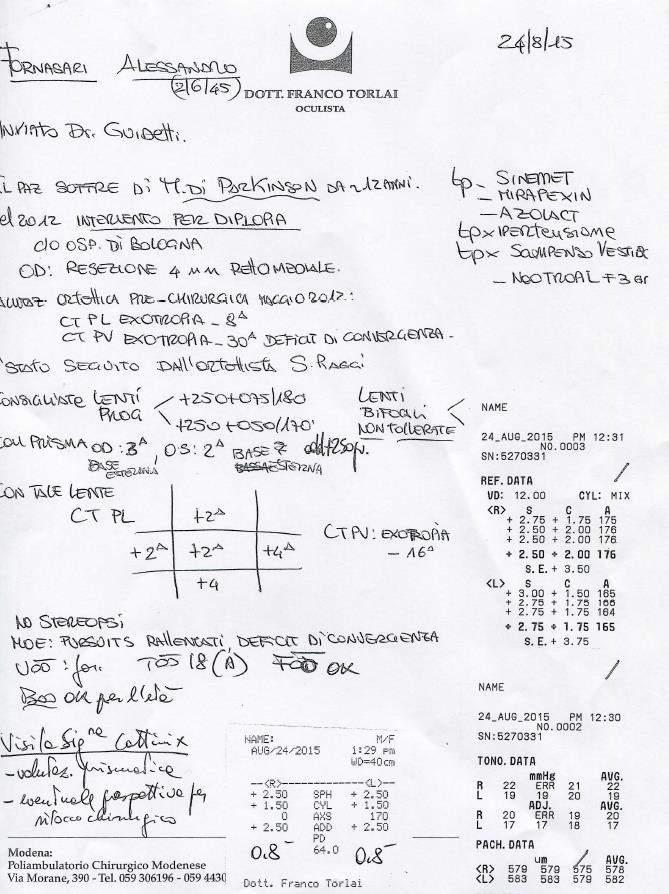 24/8/15
FORNASARI ALESSANDRO
(2/6/45)
DOTT. FRANCO TORLAI
OCULISTA
INVIATO DR. GUIDETTI.
IL PAZ SOFFRE DI M. DI PARKINSON DA ~12 ANNI.
tp - SINEMET
- MIRAPEXIN
- AZILECT
tpx IPERTENSIONE
tpx
- NEOTROAL + 3
el 2012 INTERVENTO PER DIPLOPIA
C/O OSP. DI BOLOGNA
OD: RESEZIONE 4 mm RETTO MEDIALE.
ORTOTTICA PRE-CHIRURGICA MAGGIO 2012:
CT PL EXOTROPIA - 8Δ
CT PV EXOTROPIA - 30Δ DEFICIT DI CONVERGENZA.
STATO SEGUITO DALL'ORTOTTISTA S. RAGGI
CONSIGLIATE LENTI PROG
+250+075/180
+250+050/170°
LENTI BIFOCALI NON TOLLERATE
CON PRISMA OD: 3Δ, OS: 2Δ BASE add+250
BASE ESTERNA ESTERNA
CON TALE LENTE
CT PL
+2Δ
+2Δ +2Δ +4Δ
+4
CT PV: EXOTROPIA
- 16Δ
NO STEREOPSI
MOE: PURSUITS RALLENTATI, DEFICIT DI CONVERGENZA
TOS 18 (A) OK
OK per l'età
Visita Sig.na Cottini x
- valutaz. prismatica
- eventuale prospettiva per
ritocco chirurgico
NAME
24_AUG_2015 PM 12:31
NO.0003
SN:5270331
REF.DATA
VD: 12.00 CYL: MIX
<R> S C A
+ 2.75 + 1.75 175
+ 2.50 + 2.00 176
+ 2.50 + 2.00 176
+ 2.50 + 2.00 176
S.E.+ 3.50
<L> S C A
+ 3.00 + 1.50 165
+ 2.75 + 1.75 166
+ 2.75 + 1.75 164
+ 2.75 + 1.75 165
S.E.+ 3.75
NAME
24_AUG_2015 PM 12:30
NO.0002
SN:5270331
TONO.DATA
mmHg AVG.
R 22 ERR 21 22
L 19 19 20 19
ADJ. AVG.
R 20 ERR 19 20
L 17 17 18 17
PACH.DATA
um AVG.
<R> 579 579 575 578
<L> 583 583 579 582
NAME: M/F
AUG/24/2015 1:29 pm
WD=40cm
--<R>----------<L>--
+ 2.50 SPH + 2.50
+ 1.50 CYL + 1.50
0 AXS 170
+ 2.50 ADD + 2.50
PD
64.0
0.8 0.8
Dott. Franco Torlai
Modena:
Poliambulatorio Chirurgico Modenese
Via Morane, 390 - Tel. 059 306196 - 059 4430